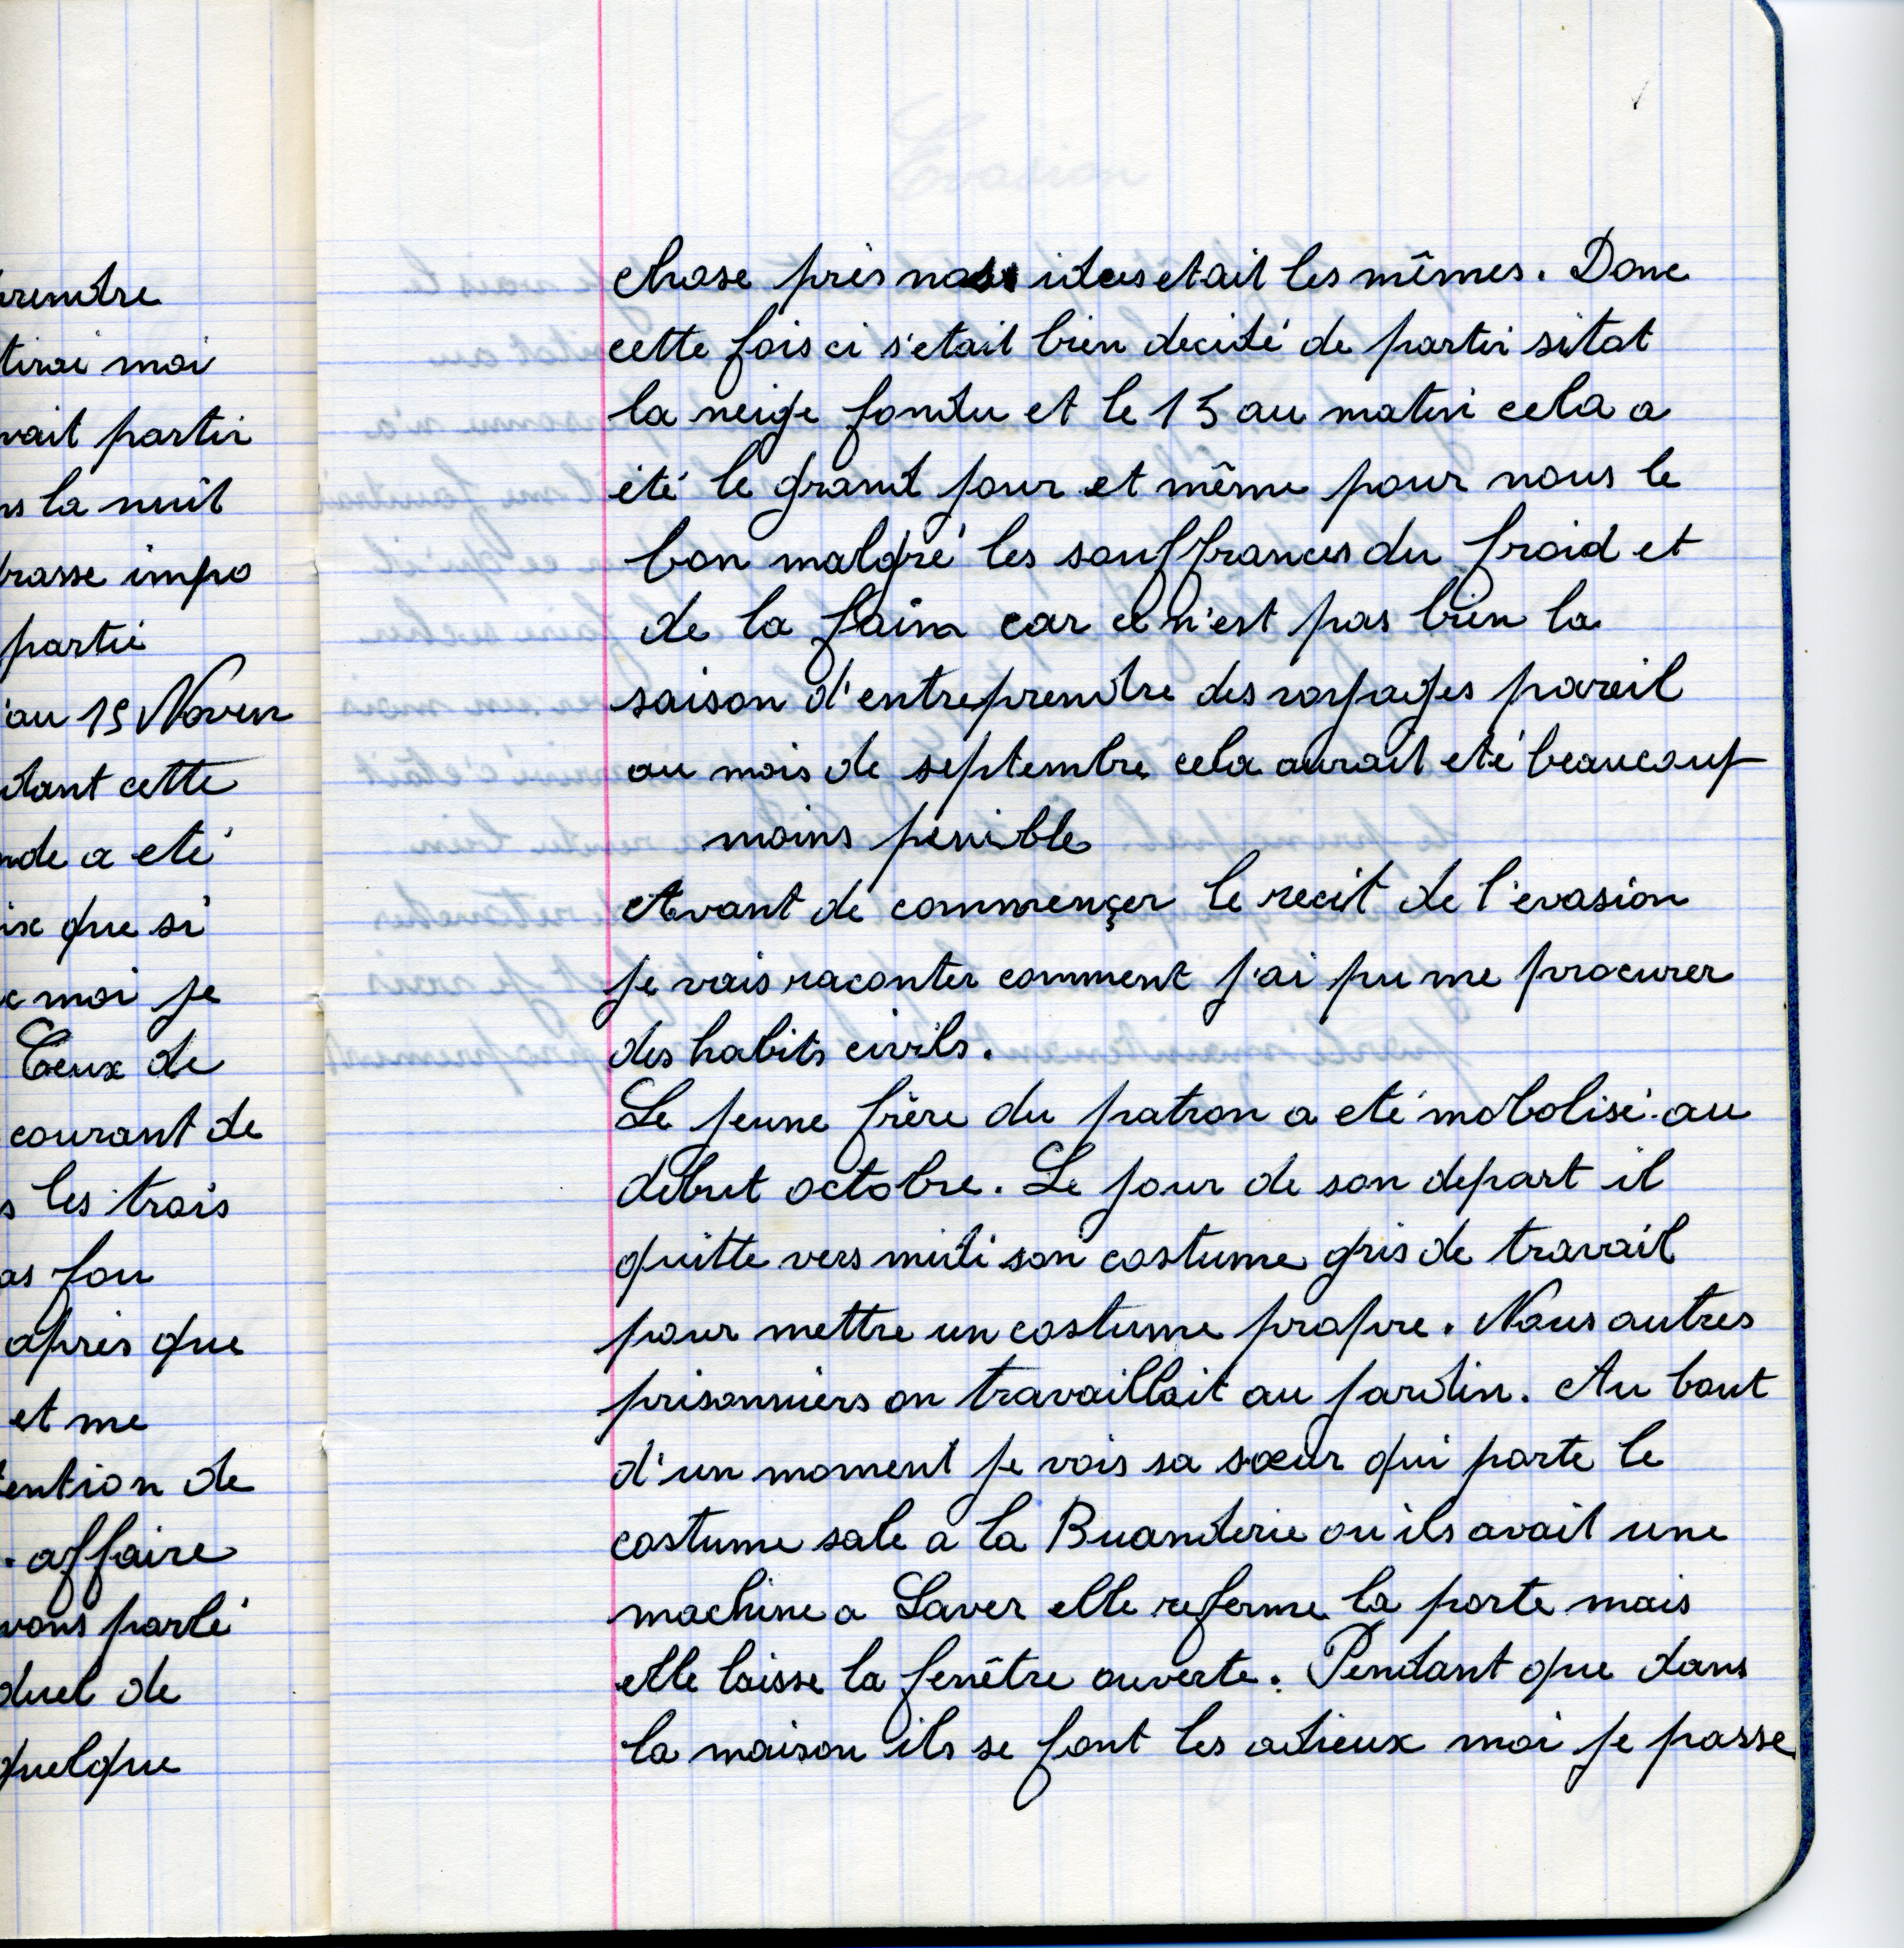 rendre
tirai moi
vait partir
ns la nuit
brasse impo
partie
au 15 Novem
dant cette
nde a eté
ix que si
moi je
Ceux de
courant de
s les trois
as fou
après que
et me
tention de
affaire
vons parlé
duel de
quelque
Evasion
chose près nos idees etait les mêmes. Donc
cette fois ci s'etait bien decidé de partir sitot
la neige fondu et le 15 au matin cela a
été le grand jour et même pour nous le
bon malgré les souffrances du froid et
de la faim car ce n'est pas bien la
saison d'entreprendre des voyages pareil
au mois de septembre cela aurait eté beaucoup
moins penible
Avant de commençer le recit de l'evasion
je vais raconter comment j'ai pu me procurer
des habits civils.
Le jeune frère du patron a eté mobolisé au
debut octobre. Le jour de son depart il
quitte vers midi son costume gris de travail
pour mettre un costume propre. Nous autres
prisonniers on travaillait au jardin. Au bout
d'un moment je vois sa sœur qui porte le
costume sale a la Buanderie ou ils avait une
machine a Laver elle referme la porte mais
elle laisse la fenêtre ouverte. Pendant que dans
la maison ils se font les adieux moi je passe